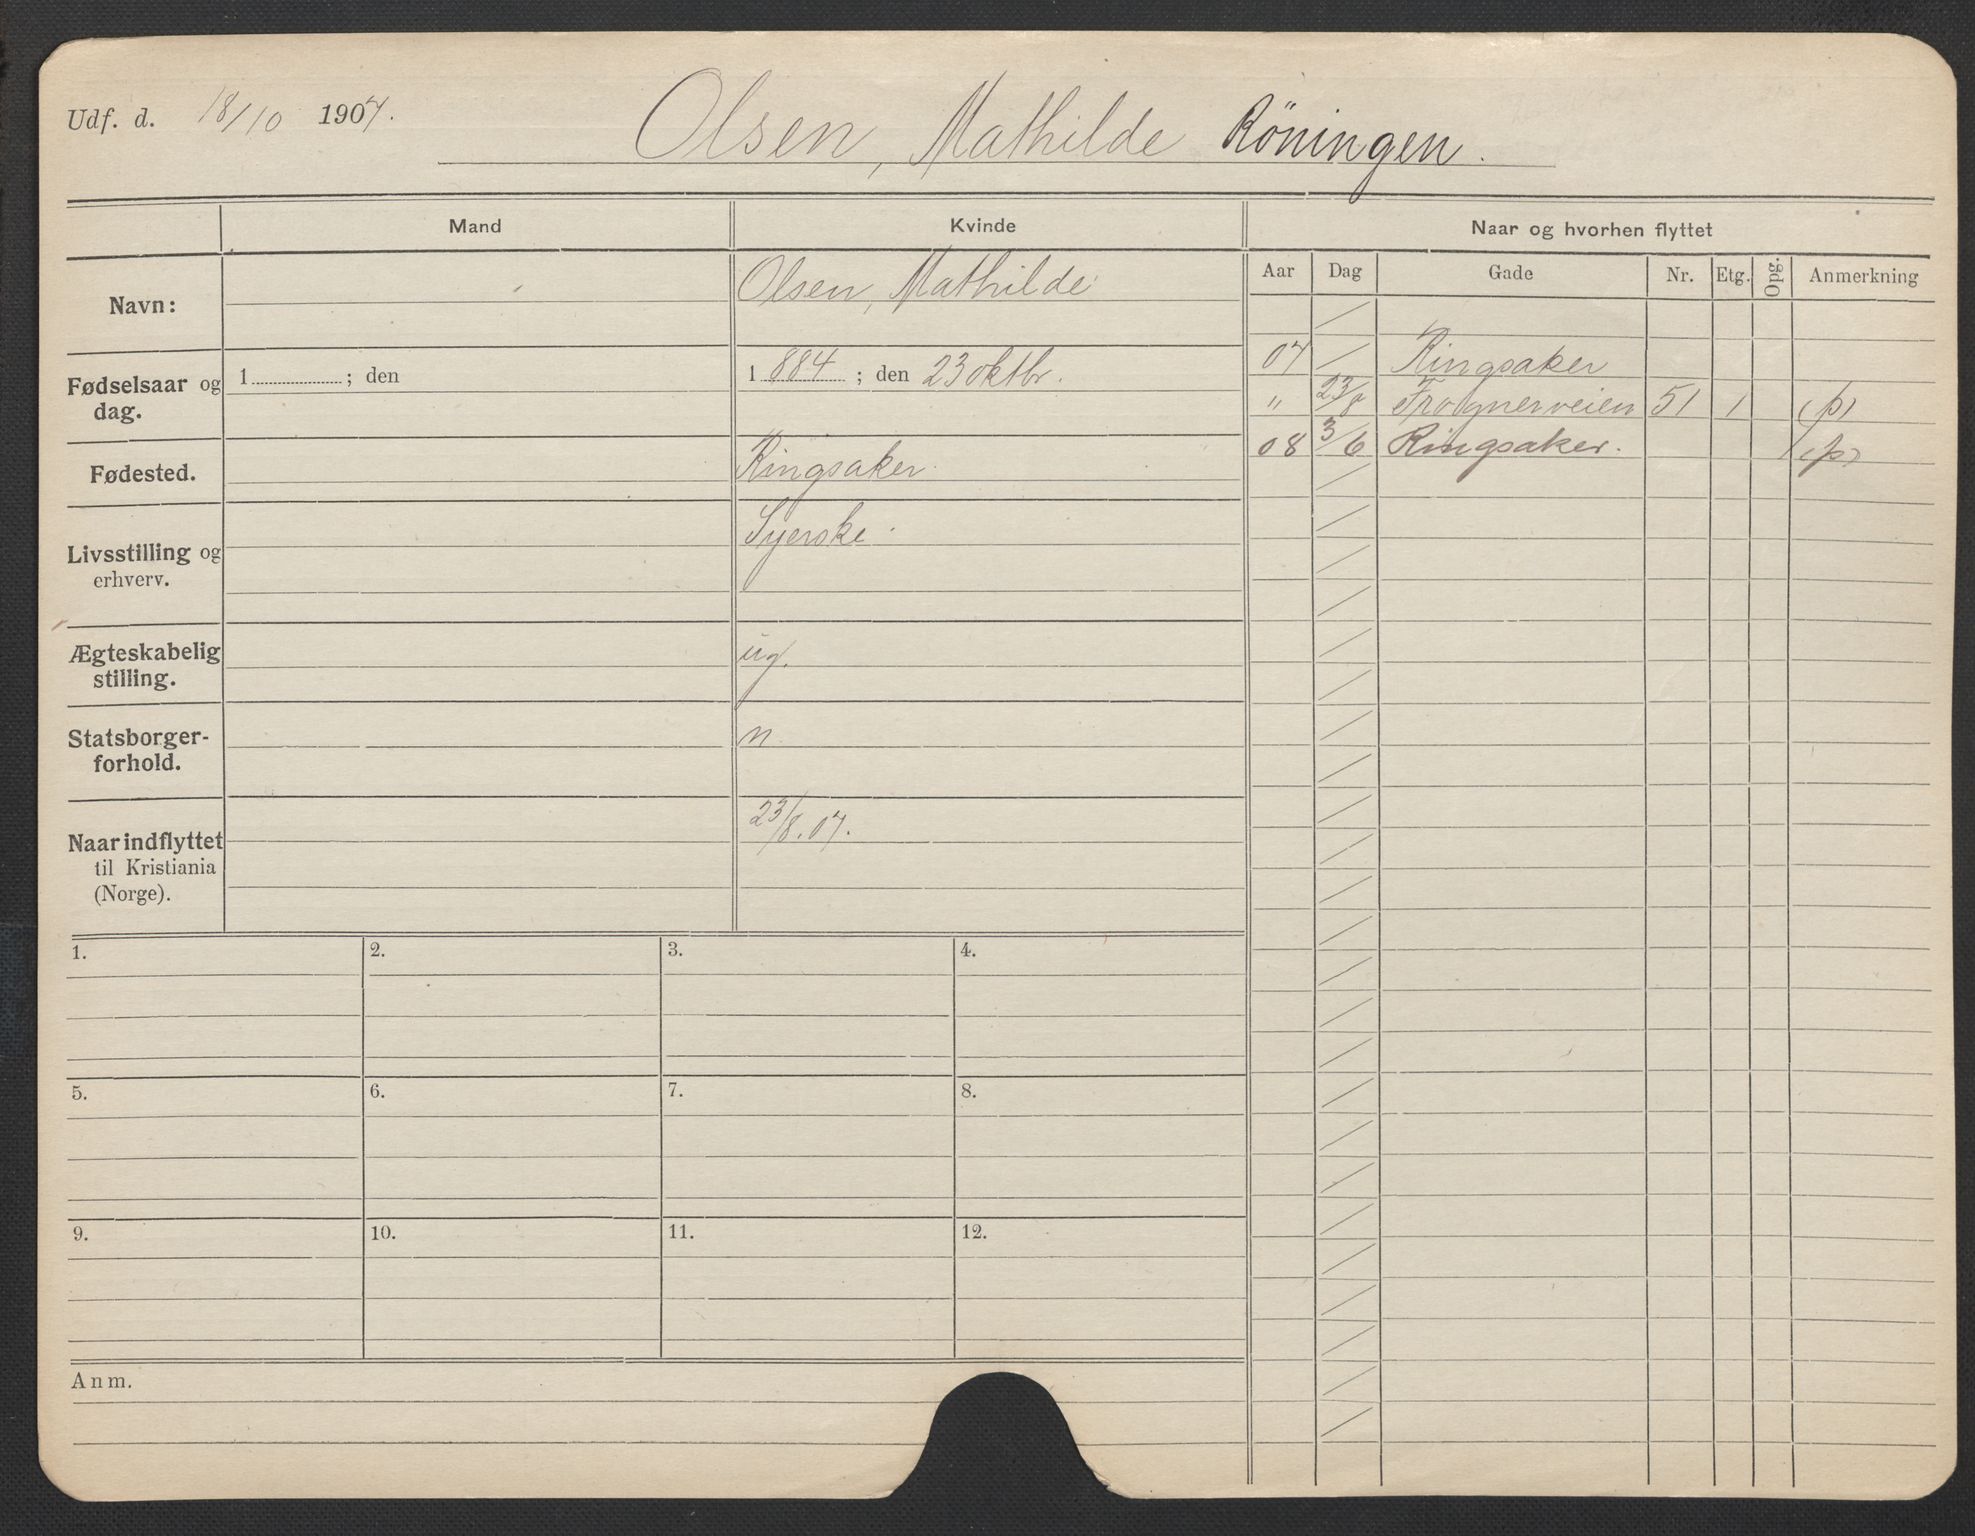 Udf. d. 18/10 1907.
Olsen, Mathilde Röningen.
Mand
Kvinde
Naar og hvorhen flyttet
Aar Dag Gade Nr. Etg. Opg. Anmerkning
Navn:
Olsen, Mathilde
Fødselsaar og
dag.
1 ; den
1 884 ; den 23 oktbr.
Fødested.
Ringsaker
Livsstilling og
erhverv.
Syerske.
Ægteskabelig
stilling.
ug.
Statsborger-
forhold.
n.
Naar indflyttet
til Kristiania
(Norge).
23/8. 07.
07 / Ringsaker
" 23/8 Frognerveien 51 1 (p)
08 3/6 Ringsaker. (p)
1. 2. 3. 4.
5. 6. 7. 8.
9. 10. 11. 12.
Anm.